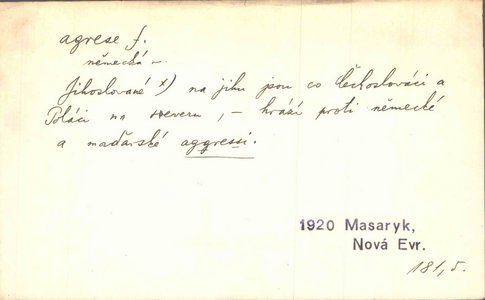 agrese f.
německá –
Jihoslované x) na jihu jsou co Čechoslováci a
Poláci na severu, – hrází proti německé
a maďarské aggressi.
1920 Masaryk,
Nová Evr.
181,5.